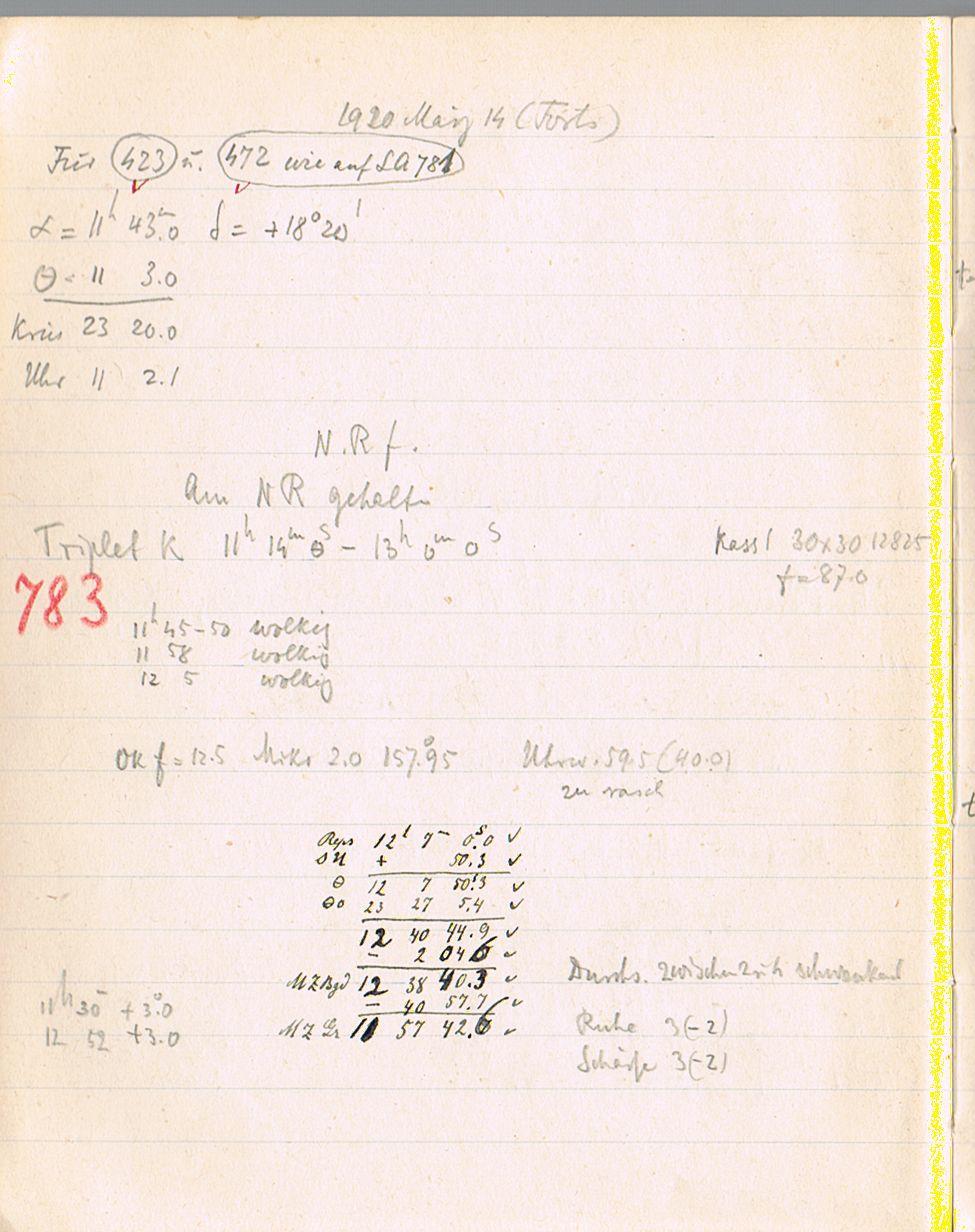 1920 März 14 (Forts)
Für 423 u. 472 wie auf LA 781
α = 11h 43m.0 δ = +18°20'
Θ = 11 3.0
Kreis 23 20.0
Uhr 11 2.1
N.R f.
Am NR gehalten
Triplet K 11h 14m 0s – 13h 0m 0s Kass 1 30x30 12825
f = 87.0
783
11h 45-50 wolkig
11 58 wolkig
12 5 wolkig
OK f = 12.5 Mikr 2.0 157°.95 Uhrw. 59.5 (40.0)
zu rasch
12h 7m 0s.0 ✓
+ 50.3 ✓
Θ 12 7 50s.3 ✓
Θ0 23 27 5.4 ✓
12 40 44.9 ✓
– 2 04.6 ✓
MZ Bgd 12 38 40.3 ✓ Durchs. zwischen 2 u. 4 schwankend
– 40 57.7 ✓
11h 30m +3°.0
MZ Gr 11 57 42.6 ✓ Ruhe 3(-2)
12 52 +3.0
Schärfe 3(-2)